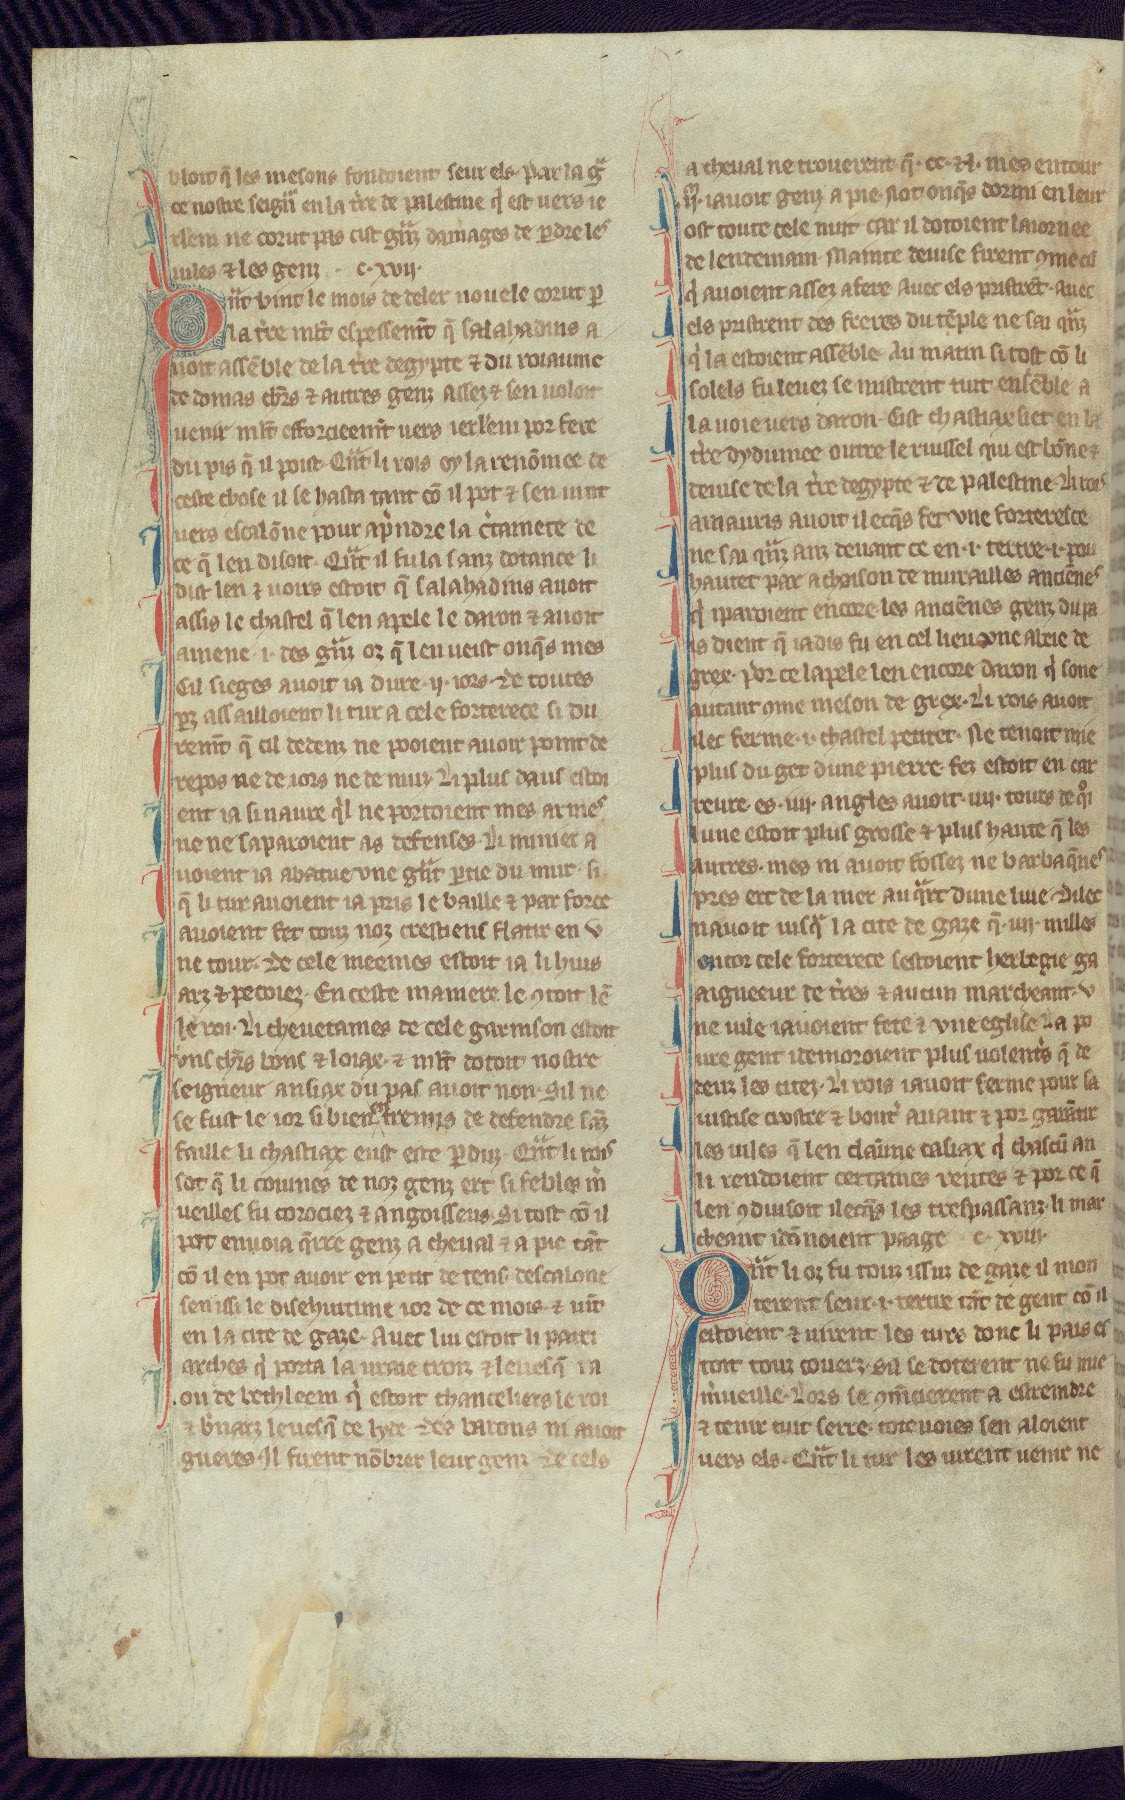 bloit q̃ les mesons fondoient seur els. Par la gͣ
ce nostre seigñr en la t̃re de palestine q̇ est vers ie
rl̃em ne corut pas cist gñz damages de ꝑdre les
uiles ⁊ les genz. c. xvij.
Qñt vint le mois de deler nouele corut p̱
la t̃re ml̃t espessem̃t q̃ salahadins a
uoit assẽble de la t̃re degypte ⁊ du roiaume
de domas ch̃rs ⁊ autres genz assez ⁊ sen uoloit
uenir ml̃t efforcieem̃t vers ierl̃em por fere
du pis q̃ il poist. Qñt li rois oy la renõmee de
ceste chose il se hasta tant cõ il pot ⁊ sen uint
vers escalõne pour ap̃ndre la c̃tainete de
ce q̃ len disoit. Qñt il fu la sanz dotance li
dist len ⁊ uoirs estoit q̃ salahadins auoit
assis le chastel q̃ len apele le daron ⁊ auoit
amene .i. des gñz oz q̃ len ueist onq̃s mes
Cil sieges auoit ia dure .ij. iors. De toutes
ꝑz assailloient li tur a cele forterece si du
rem̃t q̃ cil dedenz ne pooient auoir point de
repos ne de iors ne de nuiz. Li plus daus estoi
ent ia si naure q̇l ne portoient mes armes
ne ne saparoient as defenses. Li minet a
uoient ia abatue vne gñt ꝑtie du mur. si
q̃ li tur auoient ia pris le baille ⁊ par force
auoient fet touz noz crestiens flatir en v
ne tour. De cele meemes estoit ia li huis
arz ⁊ pecoiez. En ceste maniere le ꝯtoit lẽ
le roi. Li cheuetaines de cele garnison estoit
vns ch̃rs bons ⁊ loiax. ⁊ ml̃t dotoit nostre
seigneur ansiax du pas auoit non. Sil ne
se fust le ior si bien ẽtremis de defendre sãz
faille li chastiax eust este ꝑduz. Qñt li rois
sot q̃ li couines de noz genz ert si febles m̃
ueilles fu corociez ⁊ angoisseus. Si tost cõ il
pot enuoia q̃rre genz a cheual ⁊ a pie tãt
cõ il en pot auoir en petit de tens. descalone
sen issi le disehuitime ior de ce mois ⁊ uĩt
en la cite de gaze. Auec lui estoit li patri
arches q̇ porta la uraie croiz ⁊ leuesq̃ ra
ou de bethleem q̇ estoit chanceliers le roi
⁊ b̃nарz leuesq̃ de lyde. Des barons ni auoit
gueres. Il firent nõbrer leur genz. De cels
a cheual ne trouerent q̃ .cc. ⁊ .l. mes entour
.ij. iauoit genz a pie. Not onq̃s dormi en leur
ost toute cele nuit car il dotoient la iornee
de lendemain. Mainte deuise firent ꝯme cil
q̇ auoient assez afere. Auec els pristrẽt. auec
els pristrent des freres du tẽple ne sai qñz
q̇ la estoient assẽble. Au matin si tost cõ li
solels fu leuez se mistrent tuit ensẽble a
la uoie vers daron. Cist chastiax siet en la
t̃re dydumee outre le ruissel qui est bõne ⁊
deuise de la t̃re degypte ⁊ de palestine. Li rois
amauris auoit ilecq̃s fet vne forteresce
ne sai qñz anz deuant ce en .i. tertre .i. pou
hautet par achoison de murailles anciẽnes
q̇ iparoient encore. les anciẽnes genz du pa
is dient q̃ iadis fu en cel lieu vne abeie de
grex. Por ce lapele len encore daron q̇ sone
autant ꝯme meson de grex. Li rois auoit
ilec ferme .i. chastel petitet. Ne tenoit mie
plus du get dune pierre. fez estoit en car
reure es .iiij. angles auoit .iiij. tours de q̇i
lune estoit plus grosse ⁊ plus haute q̃ les
autres. mes ni auoit fossez ne barbaq̃nes
pres ert de la mer au q̃rt dune liue. Dilec
nauoit iusq̃ la cite de gaze q̃ .iiij. milles
entor cele forterece sestoient herbegie ga
aigneeur de t̃res ⁊ aucun marcheant. v
ne uile iauoient fete ⁊ vne eglise. La po
ure gent idemoroient plus uolent̃s q̃ de
denz les citez. Li rois iauoit ferme pour sa
iustise croistre ⁊ bout̃ auant ⁊ por garãtir
les uiles q̃ len claime casiax q̇ chascũ an
li rendoient certaines rentes ⁊ por ce q̃
len ꝯduisoit ilecq̃s les trespassanz. li mar
cheant idõnoient paage. c. xviii.
Qñt li oz fu touz issuz de gaze il mon
terent seur .i. tertre tãt de gent cõ il
estoient ⁊ uirent les turs donc li pais es
toit touz couerz. Sil se doterent ne fu mie
m̃ueille. Lors se ꝯm̃cierent a estreindre
⁊ tenir tuit serre. toteuoies sen aloient
vers els. Qñt li tur les uirent uenir ne